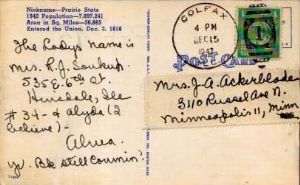 Nickname—Prairie State
1940 Population—7,897,241
Area in Sq. Miles—56,665
Entered the Union, Dec. 3, 1818
COLFAX
4 PM
DEC 15
1947
1
POST CARD
The ladys name is
Mrs. R. J. Soukup
535 E. 6th St.
Hinsdale, Ill
#34- + Clyde (I
believe) -
Alma
yr. Bk still comin'
Mrs. J. A. Ackerblade
3110 Russel Ave N.
Minneapolis 11, Minn